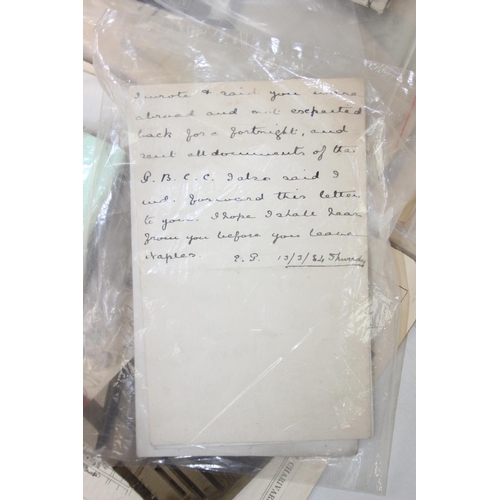 I wrote & said you were
abroad and not expected
back for a fortnight, and
sent all documents of the
P. B. C. C. I also said I
wd. forward this letter
to you. I hope I shall hear
from you before you leave
Naples. P. P. 13/3/84 Thursday
CHARIVARI